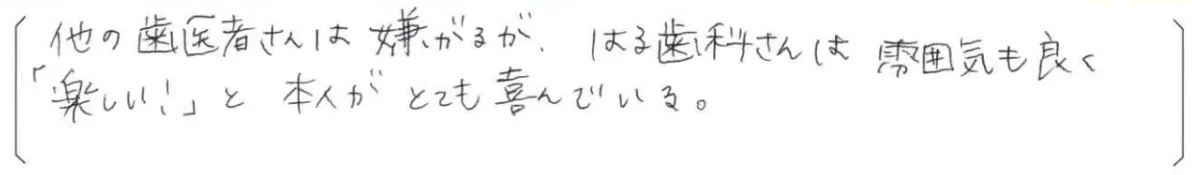 他の歯医者さんは嫌がるが、はる歯科さんは雰囲気も良く
「楽しい!」と本人がとても喜んでいる。